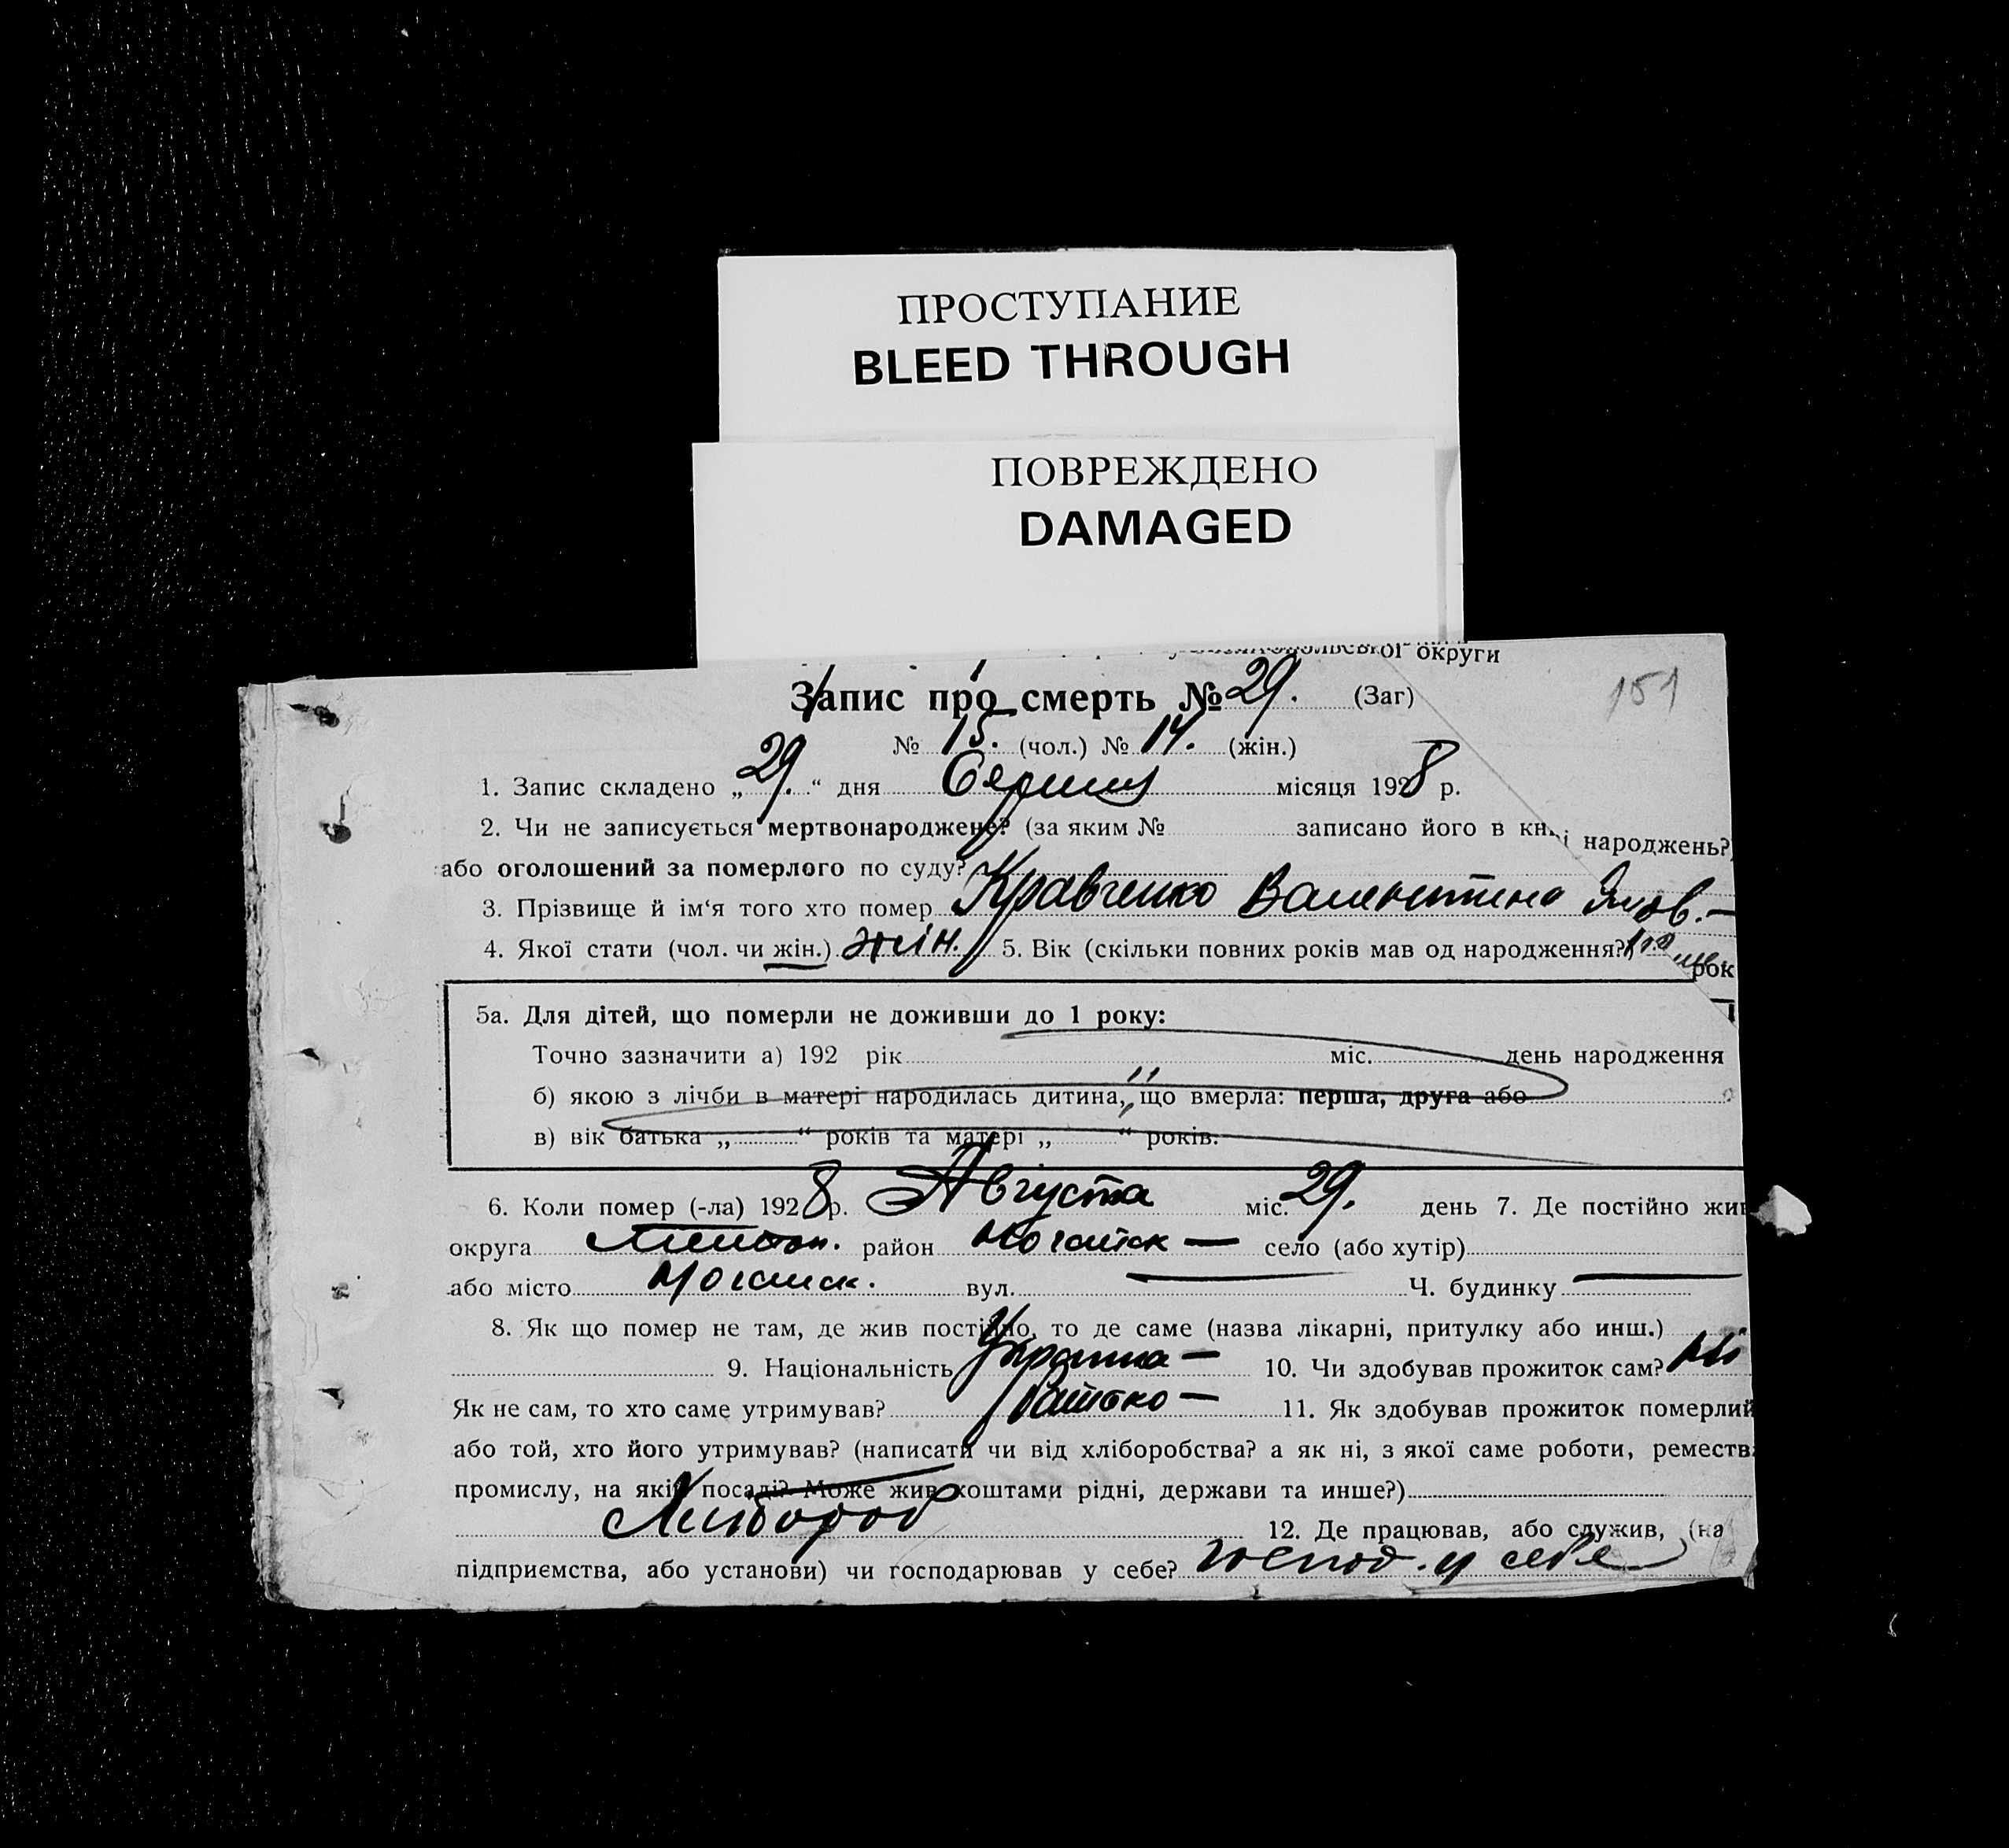 ПРОСТУПАНИЕ
BLEED THROUGH
ПОВРЕЖДЕНО
DAMAGED
округи
151
Запис про смерть № 29. (Заг)
№ 15. (чол.) № 14. (жін.)
1. Запис складено „29.“ дня Серпня місяця 1928 р.
2. Чи не записується мертвонароджене? (за яким № записано його в кн і народжень?)
або оголошений за померлого по суду?
3. Прізвище й ім‘я того хто помер Кравченко Валентина Яков.—
4. Якої стати (чол. чи жін.) жін. 5. Вік (скільки повних років мав од народження?) рок
5а. Для дітей, що померли не доживши до 1 року:
Точно зазначити а) 192 рік міс. день народження
б) якою з лічби в матері народилась дитина, що вмерла: перша, друга або
в) вік батька „ “ років та матері „ “ років.
6. Коли помер (-ла) 1928 р. Августа міс. 29. день 7. Де постійно жив
округа район Ногайськ — село (або хутір)
або місто Ногайськ. вул. — Ч. будинку —
8. Як що помер не там, де жив постійно, то де саме (назва лікарні, притулку або инш.)
9. Національність Українка — 10. Чи здобував прожиток сам? Ні
Як не сам, то хто саме утримував? Батько — 11. Як здобував прожиток померлий
або той, хто його утримував? (написати чи від хліборобства? а як ні, з якої саме роботи, ремества
промислу, на якій посаді? Може жив коштами рідні, держави та инше?)
Хлібороб 12. Де працював, або служив, (на
підприємства, або установи) чи господарював у себе? господ. у себе